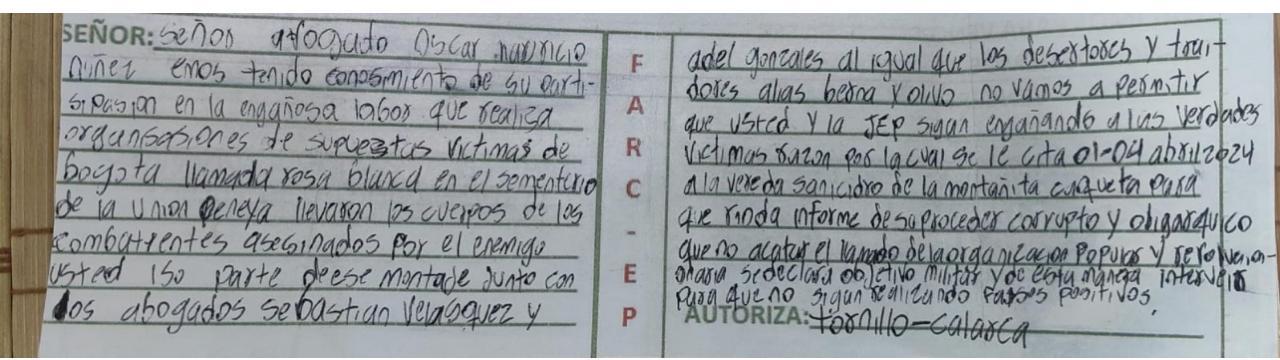 SEÑOR: señor afogado Oscar mauricio
niñez emos tenido conosimiento de su parti-
sipasion en la engañosa labor que realisa
organsasiones de supuestas victimas de
bogota llamada rosa blanca en el sementerio
de la union peneya llevaron los cuerpos de los
combatientes asesinados por el enemigo
usted iso parte deese montaje junto con
los abogados sebastian velasquez y
F
A
R
C
-
E
P
adel gonzales al igual que los desertores y trai-
dores alias berna y olivo no vamos a permitir
que usted y la JEP sigan engañando a las verdades
victimas razon por la cual se le cita 01-04 abril 2024
a la vereda sanicidro de la montañita caqueta para
que rinda informe de su proceder corrupto y oligarquico
que no acatar el llamado de la organizacion popular y revolucion-
onaria se declara objetivo militar y de esta manera intervenir
para que no sigan realizando falsos positivos.
AUTORIZA: tornillo-calarca